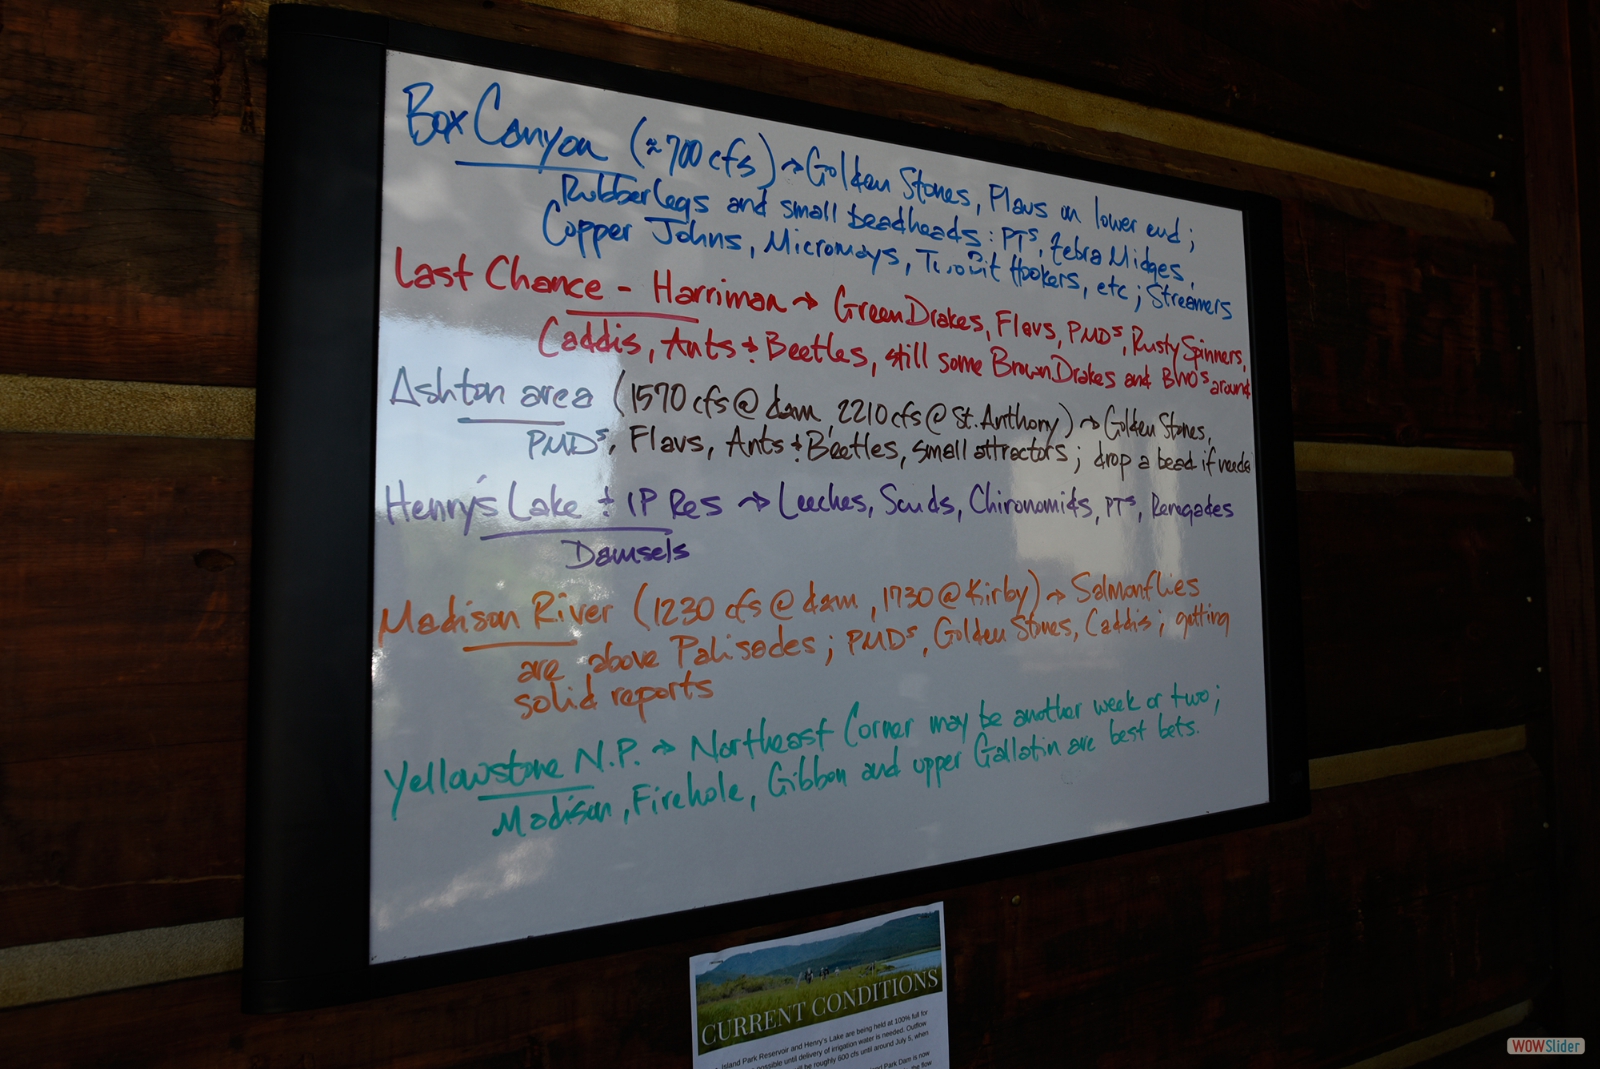 Box Canyon (≈700 cfs) → Golden Stones, Flavs on lower end;
Rubberlegs and small beadheads: PTs, Zebra Midges,
Copper Johns, Micromays, Two Bit Hookers, etc; Streamers
Last Chance - Harriman → Green Drakes, Flavs, PMDs, Rusty Spinners,
Caddis, Ants + Beetles, still some Brown Drakes and BWOs around
Ashton area (1570 cfs @ dam, 2210 cfs @ St. Anthony) → Golden Stones,
PMDs, Flavs, Ants + Beetles, small attractors; drop a bead if needed
Henry's Lake + IP Res → Leeches, Scuds, Chironomids, PTs, Renegades
Damsels
Madison River (1230 cfs @ dam, 1730 @ Kirby) → Salmonflies
are above Palisades; PMDs, Golden Stones, Caddis; getting
solid reports
Yellowstone N.P. → Northeast Corner may be another week or two;
Madison, Firehole, Gibbon and upper Gallatin are best bets.
CURRENT CONDITIONS
Island Park Reservoir and Henry's Lake are being held at 100% full for
possible until delivery of irrigation water is needed. Outflow
will be roughly 600 cfs until around July 5, when
Park Dam is now
the flow
WOWSlider